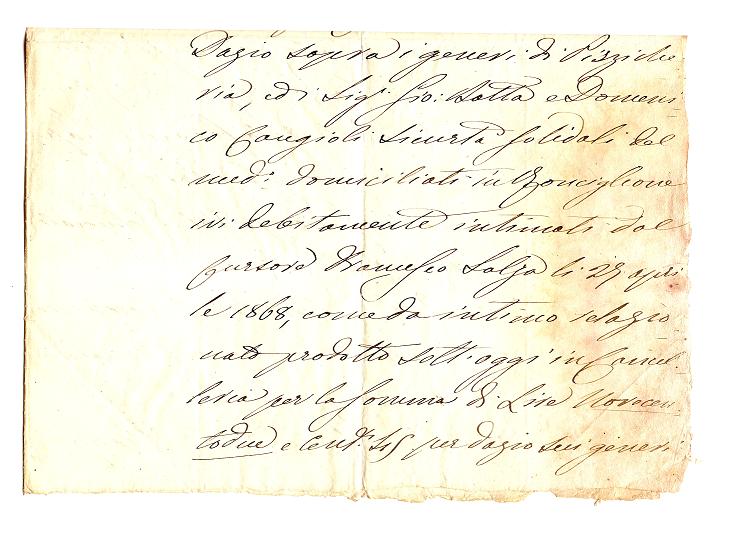 Dazio sopra i generi di Pizziche-
ria, ed i Sig.ri Gio: Batta e Domeni-
co Cangioli Sicurtà solidali del
med.o domiciliati in Ronciglione
ivi debitamente intimati dal
Cursore Francesco li 29 apri-
le 1868, come da intimo relazio-
nato prodotto sott'oggi in Cancel-
leria per la somma di Lire Novecen-
todue e Cent.i 45 per dazio sui generi